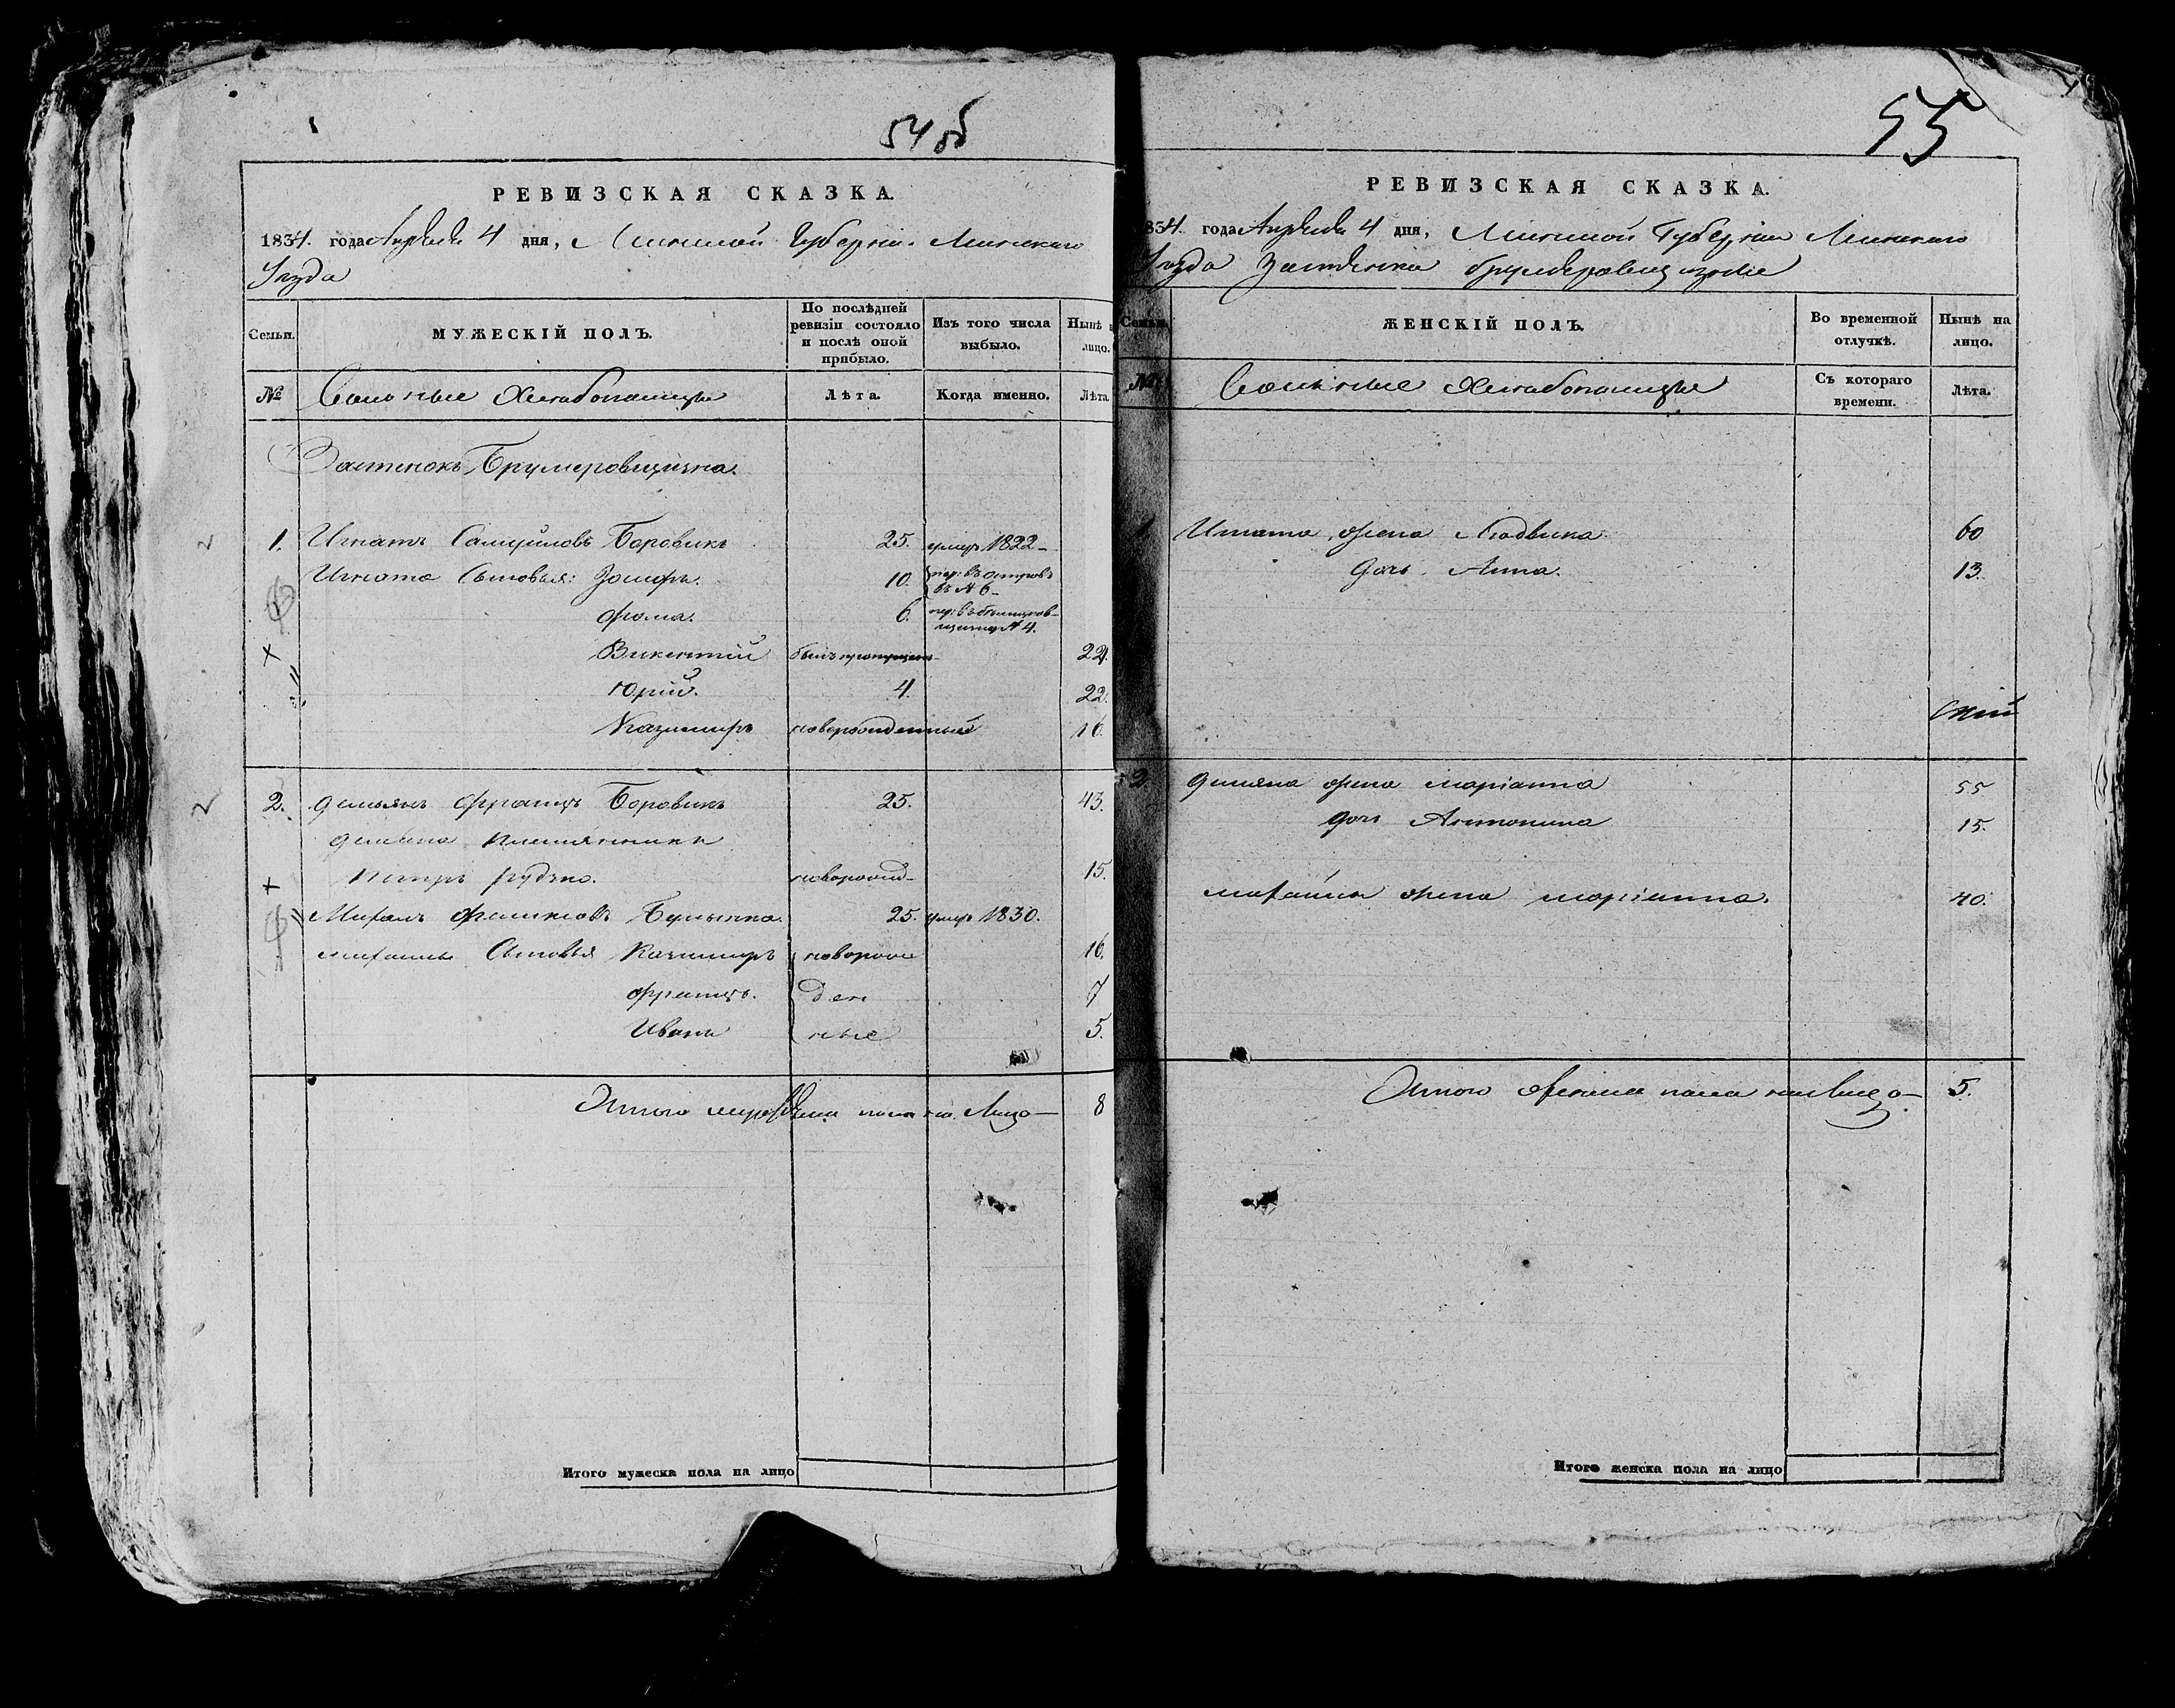 54 об
РЕВИЗСКАЯ СКАЗКА.
1834. года Апреля 4 дня, Минской Губернии Минскаго
Уезда
Семьи.
МУЖЕСКІЙ ПОЛЪ.
По послѣдней ревизіи состояло и послѣ оной прибыло.
Изъ того числа выбыло.
Нынѣ
лицо.
№
Вольные Хлебопашцы
Лѣта.
Когда именно.
Лѣта
Застенокъ Брумеровщизна.
1. Игнатъ Самуйловъ Боровикъ 25. умер 1822
Игната Сыновья: Іосифъ. 10. пер: въ островъ
въ № 6
Фома. 6. пер: въ
№ 4.
Викентий былъ пропущенъ 22.
Юрий. 4. 22.
Казимиръ новорожденный 16.
2. Демьянъ Францовъ Боровикъ 25. 43.
Демьяна племянникъ
Петръ Рудзко. новорожд 15.
Михалъ Феликсовъ 25. умер 1830.
Сыновья Казимиръ новорож 16.
Францъ. ден 7
Иванъ ные 5.
Итого мужеска пола на Лицо 8
Итого мужеска пола на лицо
55
РЕВИЗСКАЯ СКАЗКА.
834. года Апреля 4 дня, Минской Губернии Минскаго
Уезда Застенка
Семьи.
ЖЕНСКІЙ ПОЛЪ.
Во временной отлучкѣ.
Нынѣ на лицо.
№
Вольные Хлебопашцы
Съ котораго времени.
Лѣта.
1 Игната жена Людвика 60
Дочь Анна. 13.
2 Демьяна жена Маріанна 55
Дочь Антонина 15.
жена Маріанна. 40.
Итого женска пола на лицо 5.
Итого женска пола на лицо